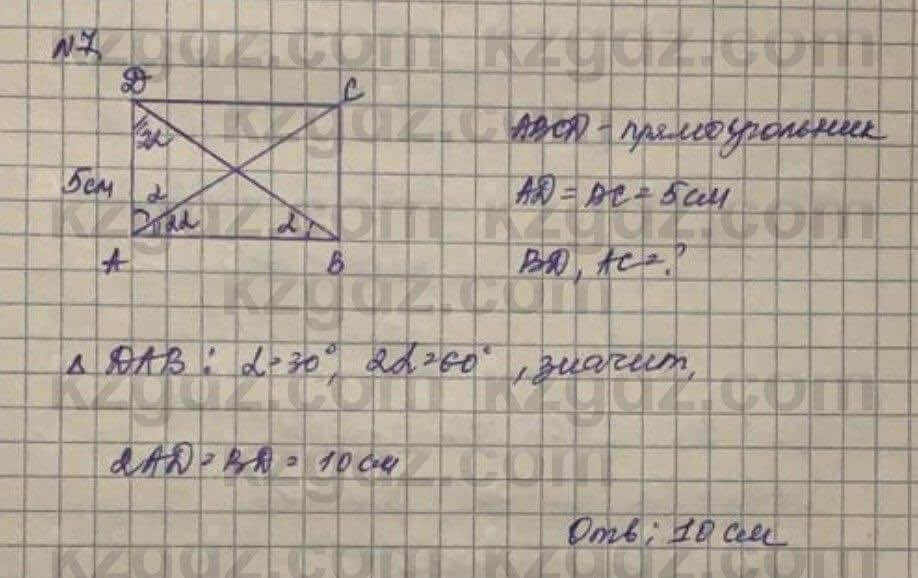 №7
D C
2α
5см α
2α α
A B
ABCD - прямоугольник
AD = BC = 5см
BD, AC = ?
△ DAB: α=30°, 2α=60°, значит,
2AD = BD = 10 см
Отв: 10 см
kzgdz.com